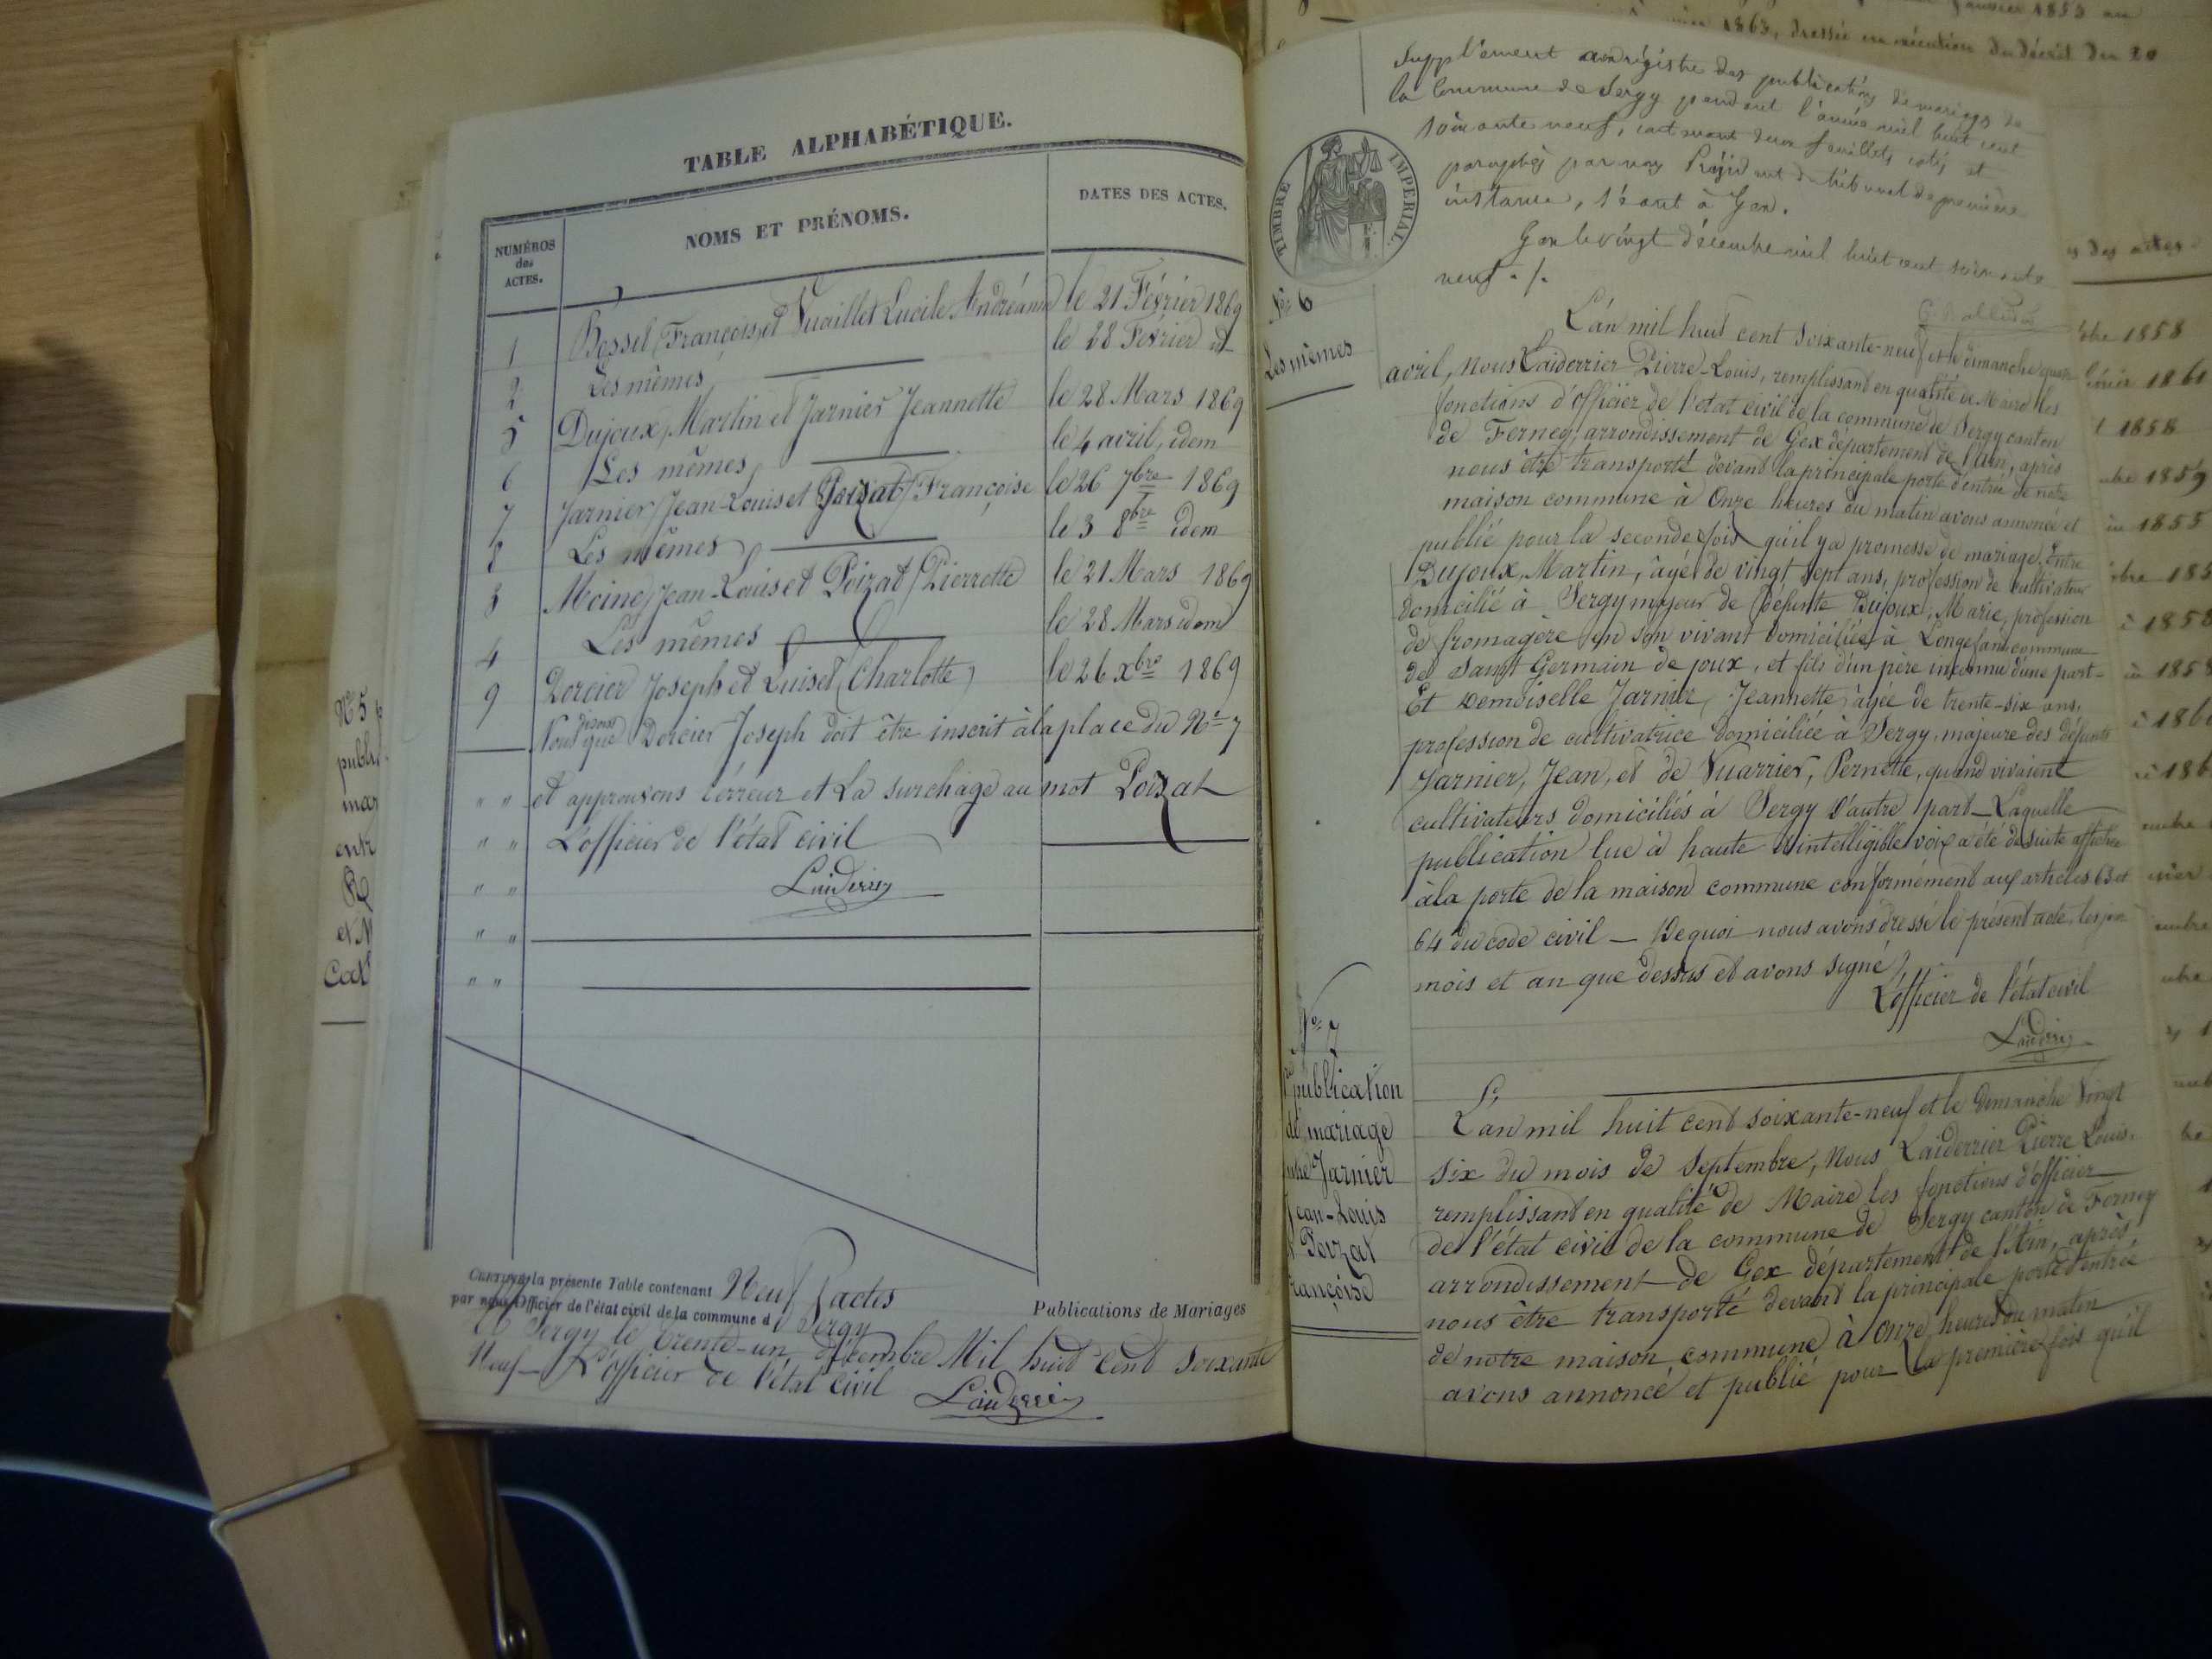 TABLE ALPHABÉTIQUE.
NUMÉROS des ACTES.
NOMS ET PRÉNOMS.
DATES DES ACTES.
1 Bossel, François, et Vuaillet Lucile Andréanne le 21 Février 1869
2 Les mêmes le 28 Février id
5 Dujoux, Martin et Jarnier Jeannette le 28 Mars 1869
6 Les mêmes, le 4 avril, idem
7 Jarnier, Jean-Louis et Poizat, Françoise le 26 7bre 1869
8 Les mêmes le 3 8bre idem
3 Moine, Jean-Louis et Poizat, Pierrette le 21 Mars 1869
4 Les mêmes le 28 Mars idem
9 Dorcier Joseph et Luiset, Charlotte, le 26 xbre 1869
Nous disons que Dorcier Joseph doit être inscrit à la place du No 7
" " et approuvons l'erreur et La surchage au mot Poizat
" " L'officier de l'état civil
" " Laiderrier
" "
" "
Certifié la présente Table contenant Neuf actes
par nous Officier de l'état civil de la commune d Sergy
Publications de Mariages
A Sergy le trente-un décembre Mil huit cent soixante
Neuf — L'officier de l'état civil
Laiderrier
N° 5
publi
mar
entr
et M
Cat
Supplément au régistre des publications de mariage de
la Commune de Sergy pendant l'année mil huit cent
soixante neuf, contenant deux feuillets cotés et
paraphés par nous Président du tribunal de première
instance, séant à Gex.
Gex le vingt décembre mil huit cent soixante
neuf ./.
TIMBRE IMPERIAL.
No 6
Les mêmes
L'an mil huit cent soixante-neuf et le dimanche quatre
avril, nous Laiderrier Pierre-Louis, remplissant en qualité de Maire les
fonctions d'officier de l'état civil de la commune de Sergy canton
de Ferney, arrondissement de Gex département de l'Ain, après
nous être transporté devant la principale porte d'entrée de notre
maison commune à Onze heures du matin avons annoncé et
publié pour la seconde fois qu'il y a promesse de mariage, Entre
Dujoux, Martin, âgé de vingt sept ans, profession de cultivateur
domicilié à Sergy majeur de Defunte Dujoux, Marie, profession
de fromagère en son vivant domiciliée à Longefan commune
de Saint Germain de joux, et fils d'un père inconnu d'une part-
Et Demoiselle Jarnier, Jeannette, âgée de trente-six ans,
profession de cultivatrice domiciliée à Sergy, majeure des défunts
Jarnier, Jean, et de Vuarrier, Pernette, quand vivaient
cultivateurs domiciliés à Sergy D'autre part — Laquelle
publication lue à haute & intelligible voix a été de suite affichée
à la porte de la maison commune conformément aux articles 63 et
64 du code civil — De quoi nous avons dressé le présent acte, les jour
mois et an que dessus et avons signé,
L'officier de l'état civil
Laiderrier
No 7
publication
de mariage
entre Jarnier
Jean-Louis
et Poizat
Françoise
L'an mil huit cent soixante-neuf et le Dimanche Vingt
six du mois de Septembre, Nous Laiderrier Pierre Louis,
remplissant en qualité de Maire les fonctions d'officier
de l'état civil de la commune de Sergy canton de Ferney
arrondissement de Gex département de l'Ain, après
nous être transporté devant la principale porte d'entrée
de notre maison commune à Onze heures du matin
avons annoncé et publié pour la première fois qu'il
1863, dressée en exécution du décret du 20
des actes
bre 1858
1861
1858
bre 1859
1855
bre 185
1858
1858
186
186